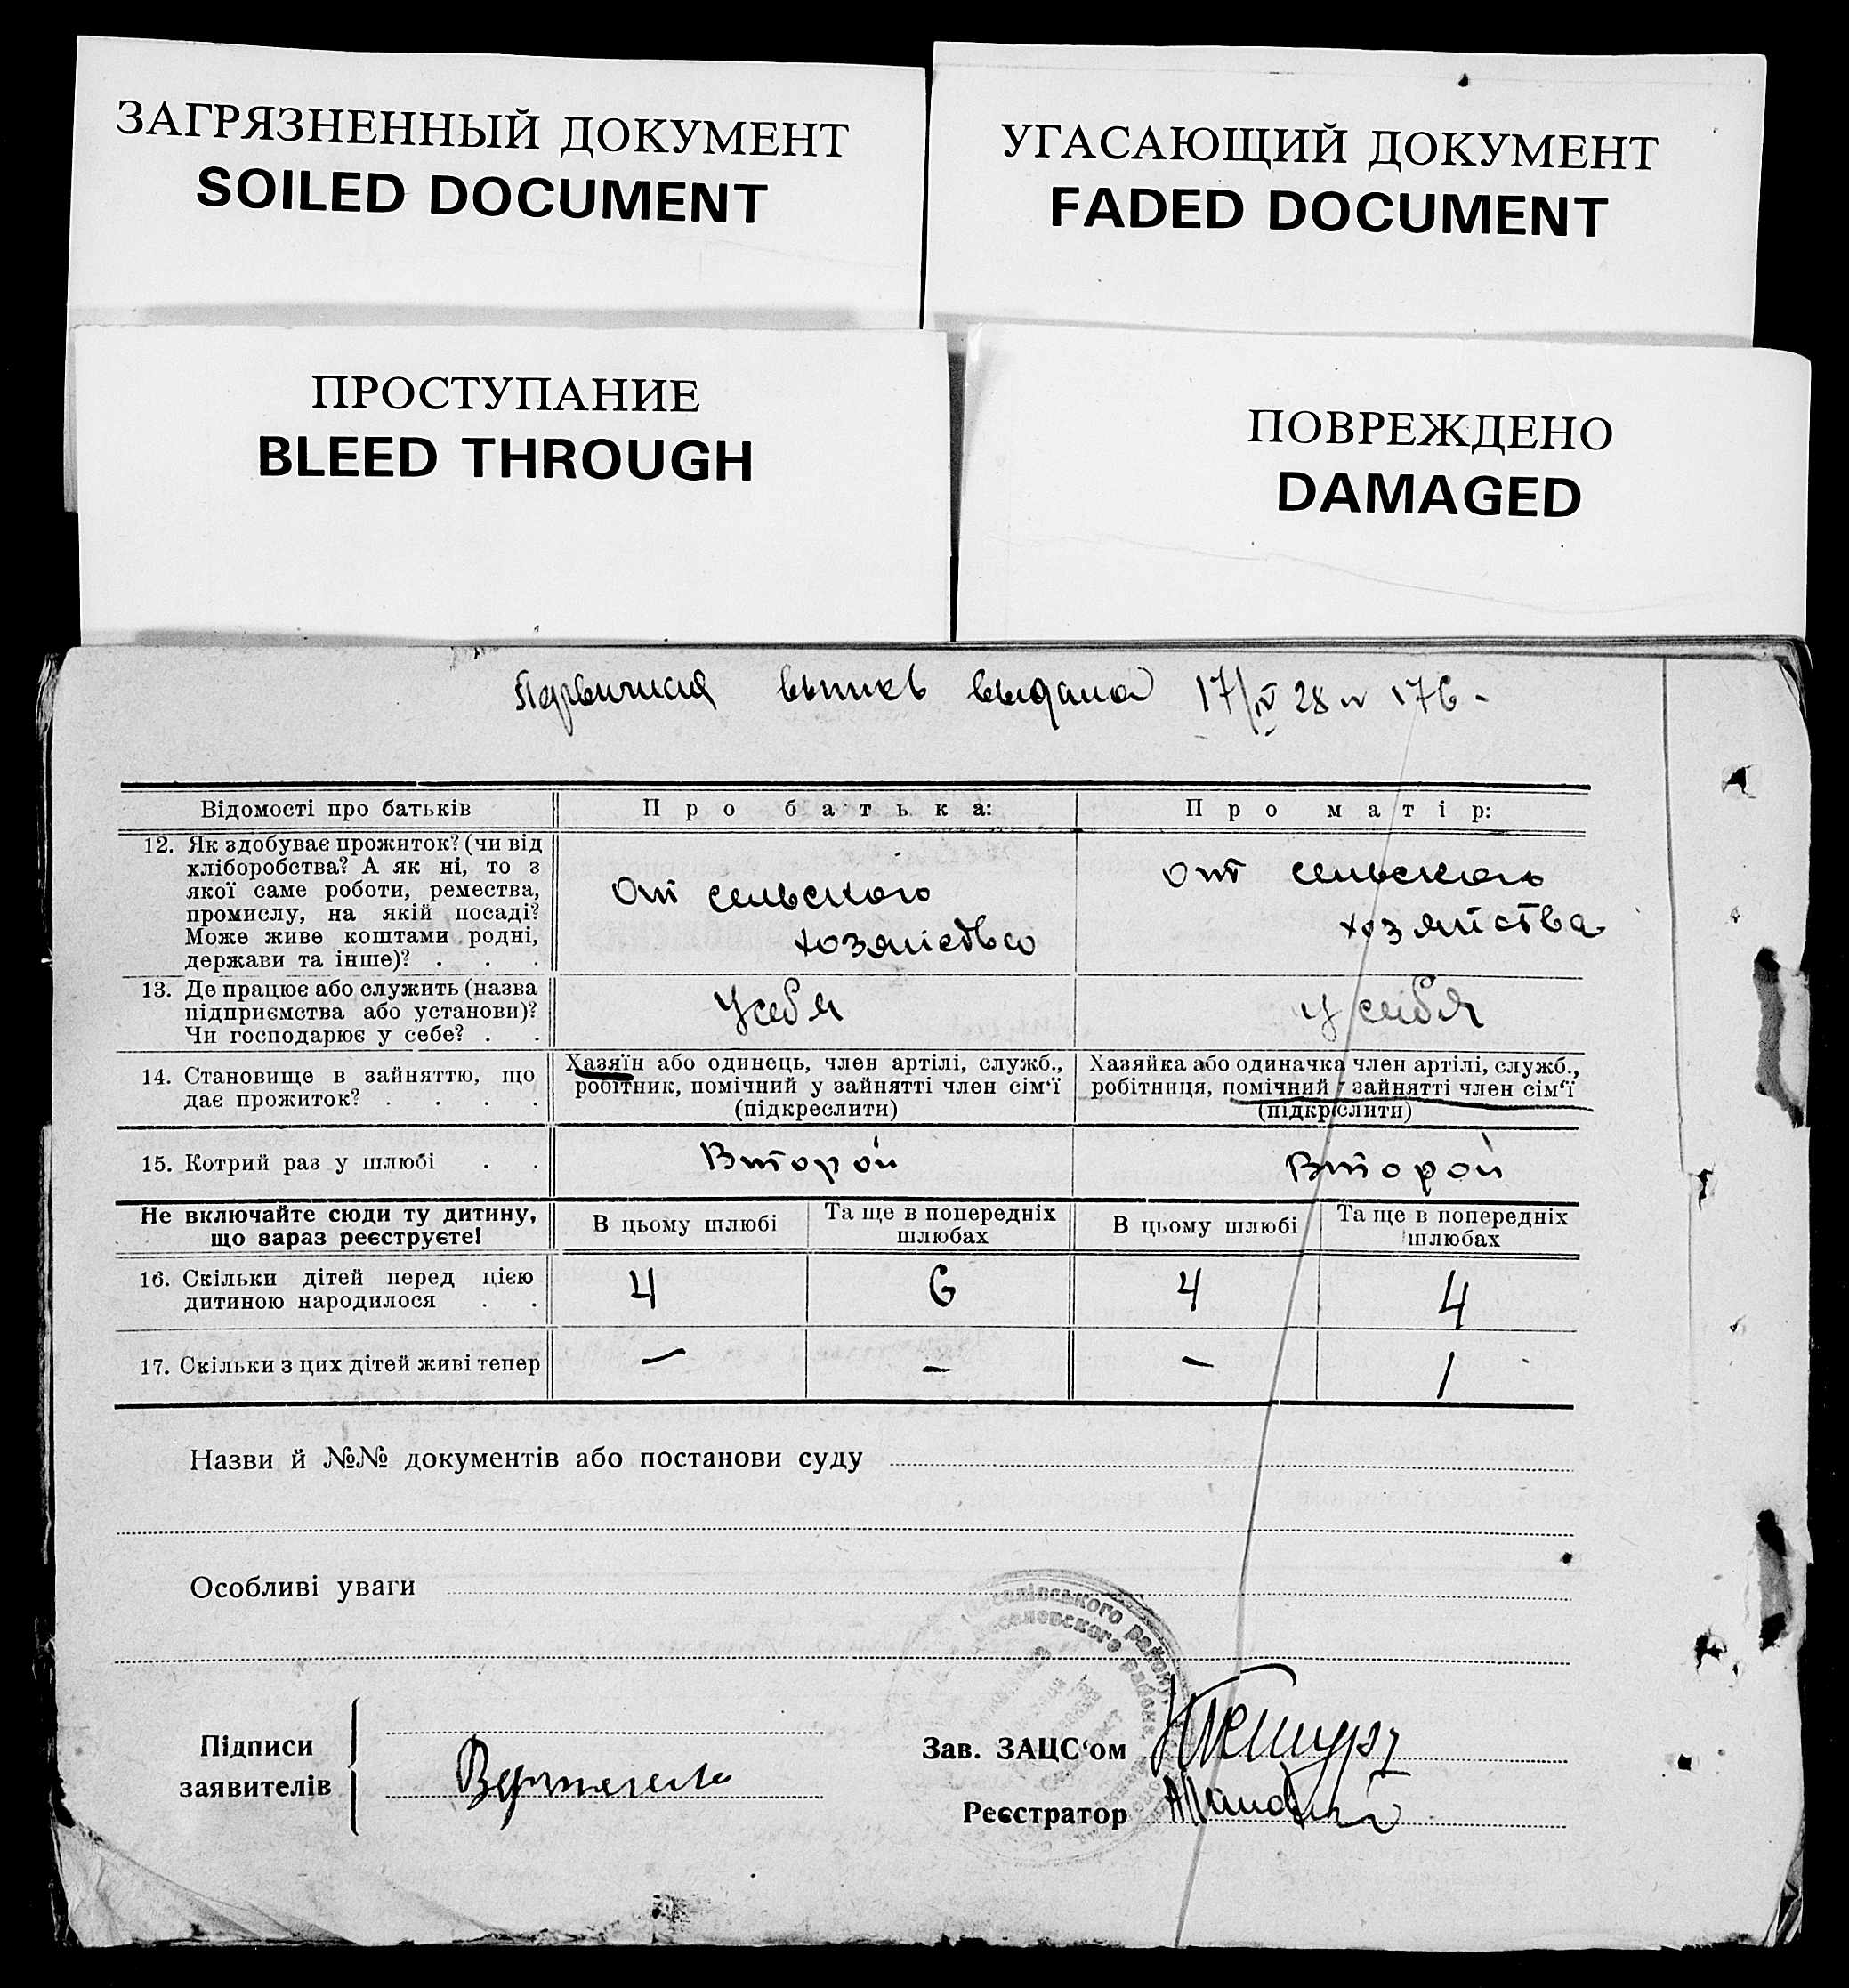 ЗАГРЯЗНЕННЫЙ ДОКУМЕНТ
SOILED DOCUMENT
УГАСАЮЩИЙ ДОКУМЕНТ
FADED DOCUMENT
ПРОСТУПАНИЕ
BLEED THROUGH
ПОВРЕЖДЕНО
DAMAGED
Первичная выпись выдана 17/IV 28 176 -
Відомості про батьків
Про батька:
Про матір:
12. Як здобуває прожиток? (чи від
хліборобства? А як ні, то з
якої саме роботи, ремества,
промислу, на якій посаді?
Може живе коштами родні,
держави та інше)? . . .
От сельского
хозяйства
от сельского
хозяйства
13. Де працює або служить (назва
підприємства або установи)?
Чи господарює у себе? . .
У себя
у себя
14. Становище в зайняттю, що
дає прожиток? . . . .
Хазяїн або одинець, член артілі, служб.,
робітник, помічний у зайнятті член сім'ї
(підкреслити)
Хазяйка або одиначка член артілі, служб.,
робітниця, помічний у зайнятті член сім'ї
(підкреслити)
15. Котрий раз у шлюбі . .
Второй
Второй
Не включайте сюди ту дитину,
що зараз реєструєте!
В цьому шлюбі
Та ще в попередніх
шлюбах
В цьому шлюбі
Та ще в попередніх
шлюбах
16. Скільки дітей перед цією
дитиною народилося . .
4
6
4
4
17. Скільки з цих дітей живі тепер
—
—
—
1
Назви й №№ документів або постанови суду
Особливі уваги
селівського району
селевского района
Підписи
заявителів
Зав. ЗАЦС'ом
Реєстратор